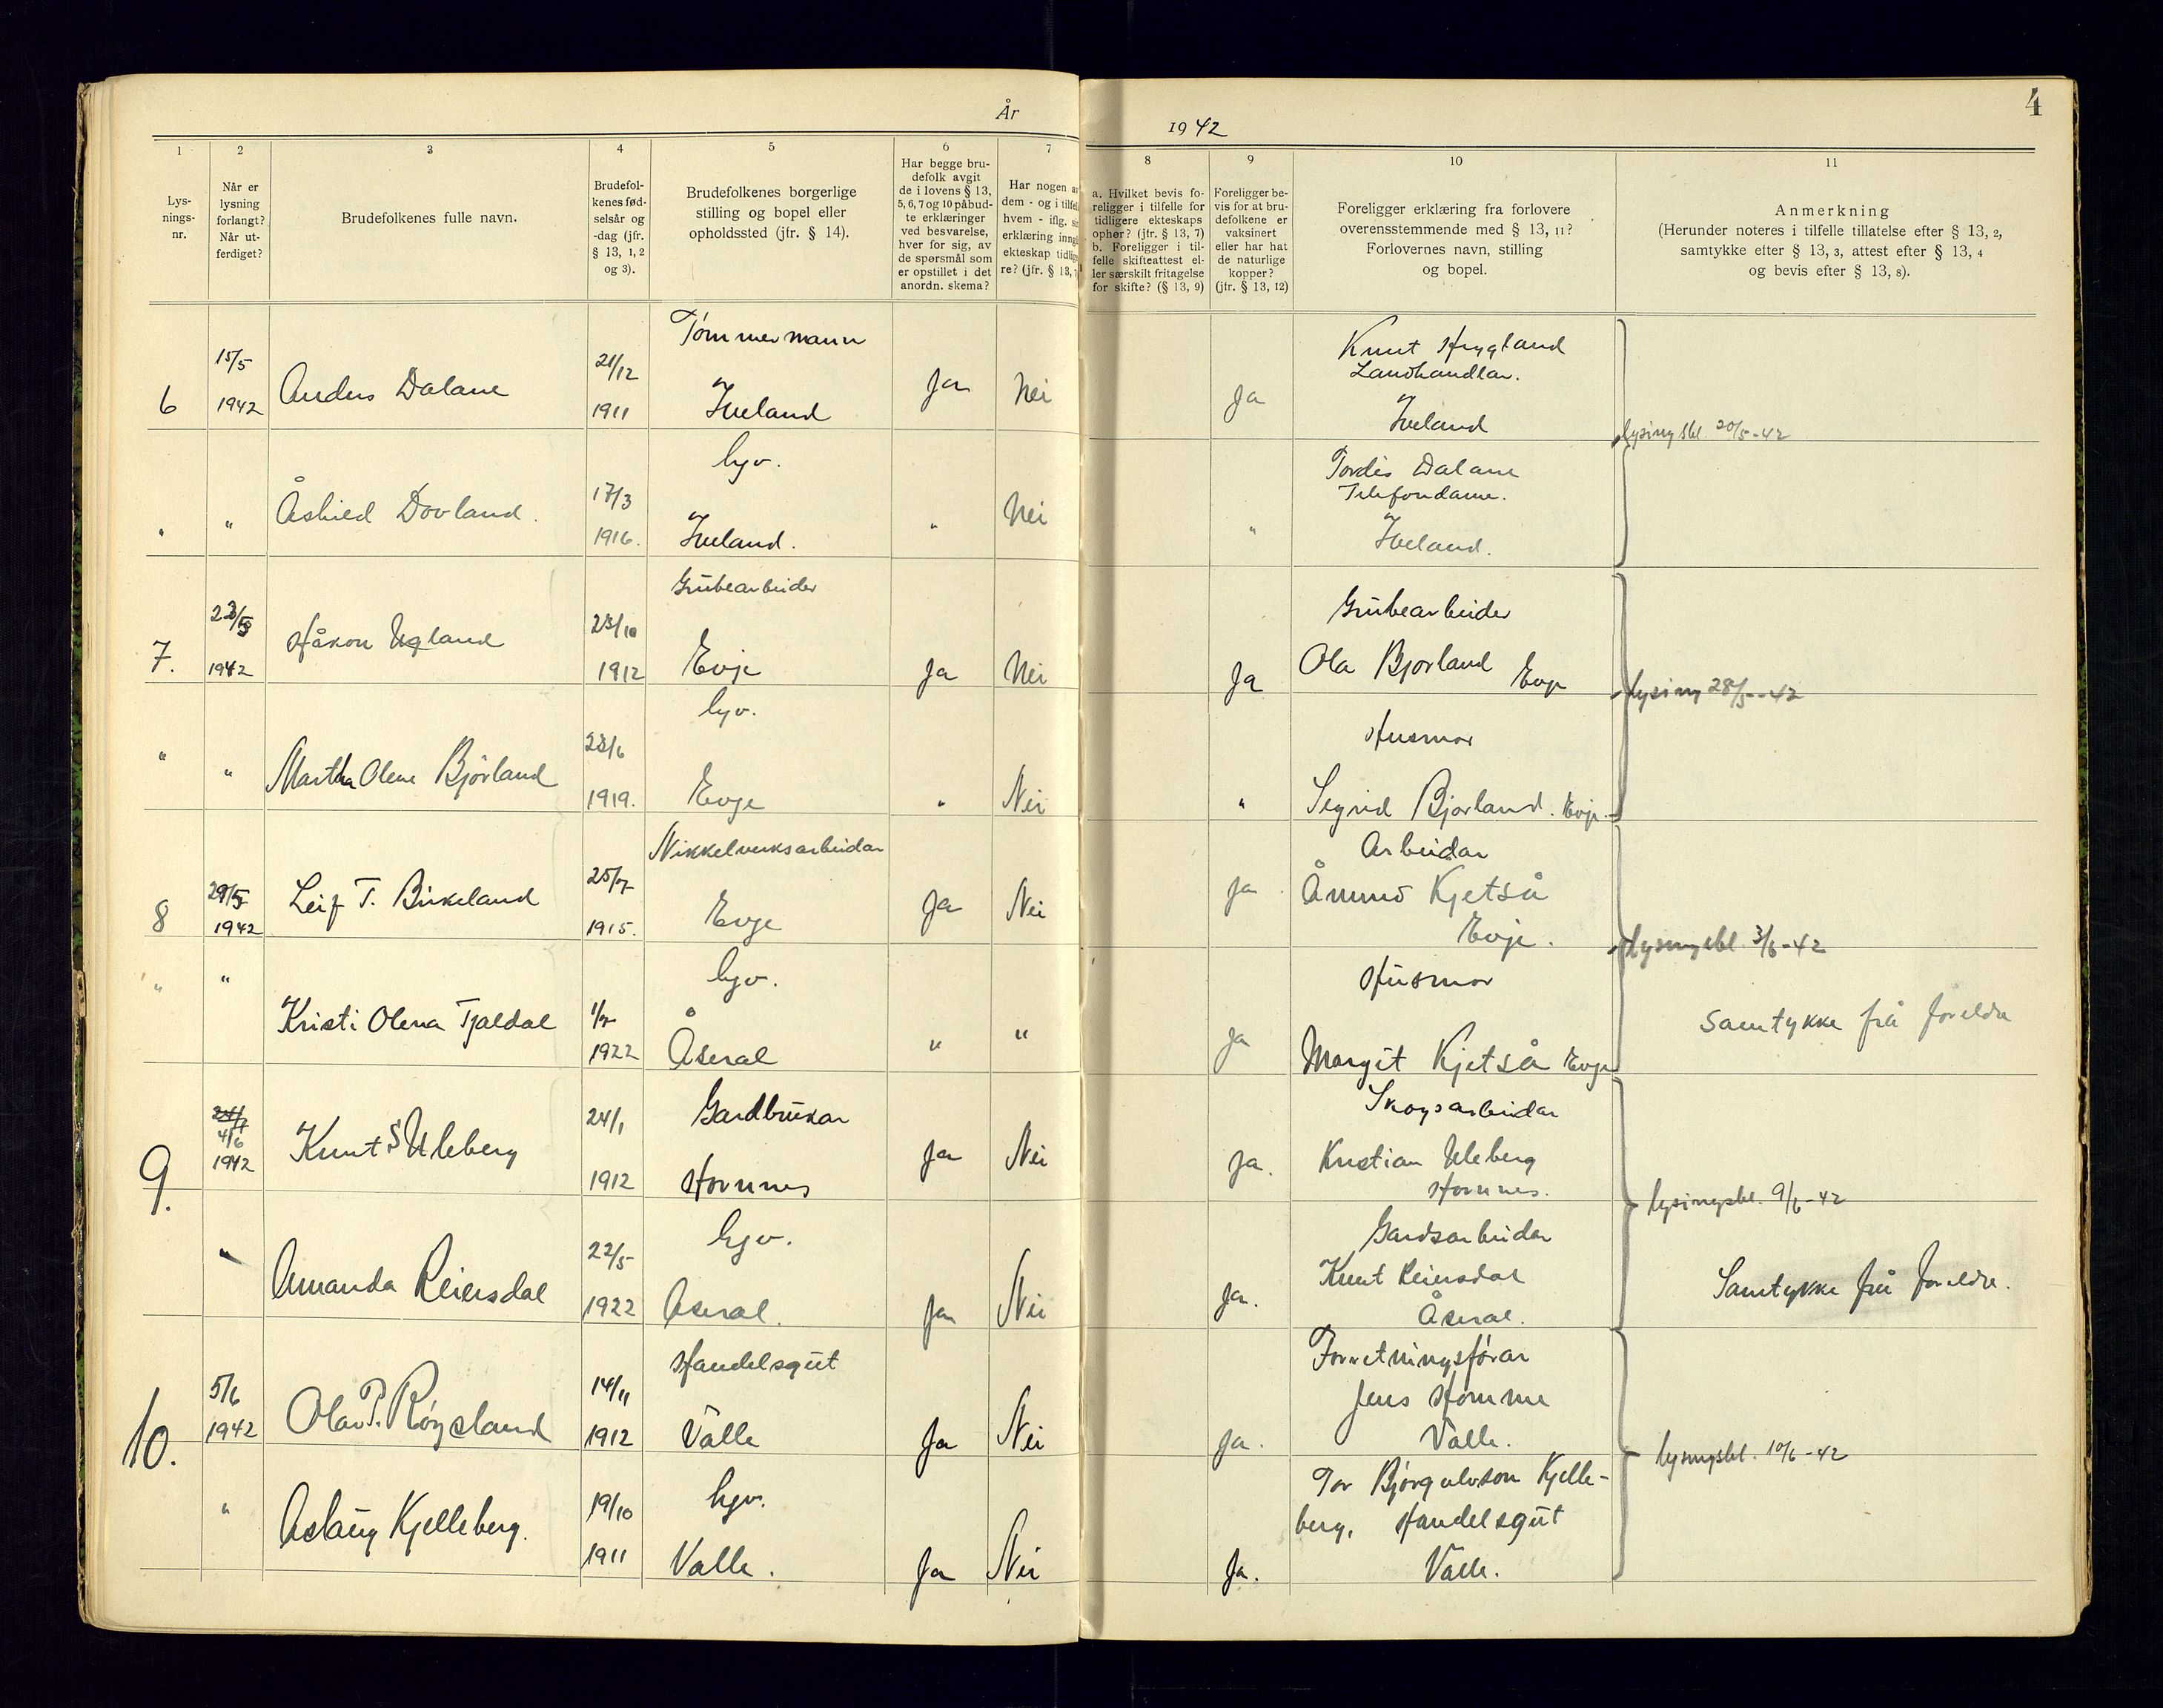 År 1942
4
1 2 3 4 5 6 7 8 9 10 11
Lys-
nings-
nr.
Når er
lysning
forlangt?
Når ut-
ferdiget?
Brudefolkenes fulle navn.
Brudefol-
kenes fød-
selsår og
-dag (jfr.
§ 13, 1, 2
og 3).
Brudefolkenes borgerlige
stilling og bopel eller
opholdssted (jfr. § 14).
Har begge bru-
defolk avgit
de i lovens § 13,
5, 6, 7 og 10 påbud-
te erklæringer
ved besvarelse,
hver for sig, av
de spørsmål som
er opstillet i det
anordn. skema?
Har nogen av
dem - og i tilfelle
hvem - iflg. sin
erklæring inngå
ekteskap tidlige
re? (jfr. § 13, 7
a. Hvilket bevis fo-
religger i tilfelle for
tidligere ekteskaps
ophør? (jfr. § 13, 7)
b. Foreligger i til-
felle skifteattest el-
ler særskilt fritagelse
for skifte? (§ 13, 9)
Foreligger be-
vis for at bru-
defolkene er
vaksinert
eller har hat
de naturlige
kopper?
(jfr. § 13, 12)
Foreligger erklæring fra forlovere
overensstemmende med § 13, 11?
Forlovernes navn, stilling
og bopel.
Anmerkning
(Herunder noteres i tilfelle tillatelse efter § 13, 2,
samtykke efter § 13, 3, attest efter § 13, 4
og bevis efter § 13, 8).
6
15/5
1942
Anders Dalane
21/12
1911
Tømmermann
Iveland
Ja
Nei
Ja
Knut
Landhandlar.
Iveland
lysingsbl. 20/5-42
" "
Åshild Dovland.
17/3
1916.
hgv.
Iveland.
"
Nei
"
Tordis Dalane
Telefondame.
Iveland.
7.
1942
Håkon Ugland
23/10
1912
Grubearbeider
Evje
Ja
Nei
Ja
Grubearbeider
Ola Bjorland Evje
lysing 28/5-42
" "
Martha Olene Bjørland
23/6
1919.
hgv.
Evje
"
Nei
"
Husmor
Sigrid Bjorland. Evje.
8
29/5
1942
Leif T. Birkeland
25/7
1915.
Nikkelverksarbeidar
Evje
Ja
Nei
Ja
Arbeidar
Åmund Kjetså
Evje.
lysingsbl 3/6-42
" "
Kristi Olena Tjaldal
1922
hgv.
Åseral
" "
Ja
Husmor
Margit Kjetså Evje
Samtykke frå foreldre
9.
4/6
1942
Knut S Uleberg
24/1
1912
Gardbrukar
Hornnes
Ja
Nei
Ja.
Skogsarbeidar
Kristian Uleberg
Hornnes.
lysingsbl. 9/6-42
"
Amanda Reiersdal
22/5
1922
hgv.
Åseral.
Ja
Nei
Ja.
Gardsarbeidar
Knut Reiersdal
Åseral.
Samtykke frå foreldre.
10.
5/6
1942
Olav P. Røysland
14/11
1912
Handelsgut
Valle
Ja
Nei
Ja.
Forretningsførar
Jens Homme
Valle.
lysingsbl. 10/6-42
"
Aslaug Kjelleberg.
19/10
1911
hgv.
Valle.
Ja
Nei
Ja.
Tor Bjørgulvson Kjelle-
berg, Handelsgut
Valle.